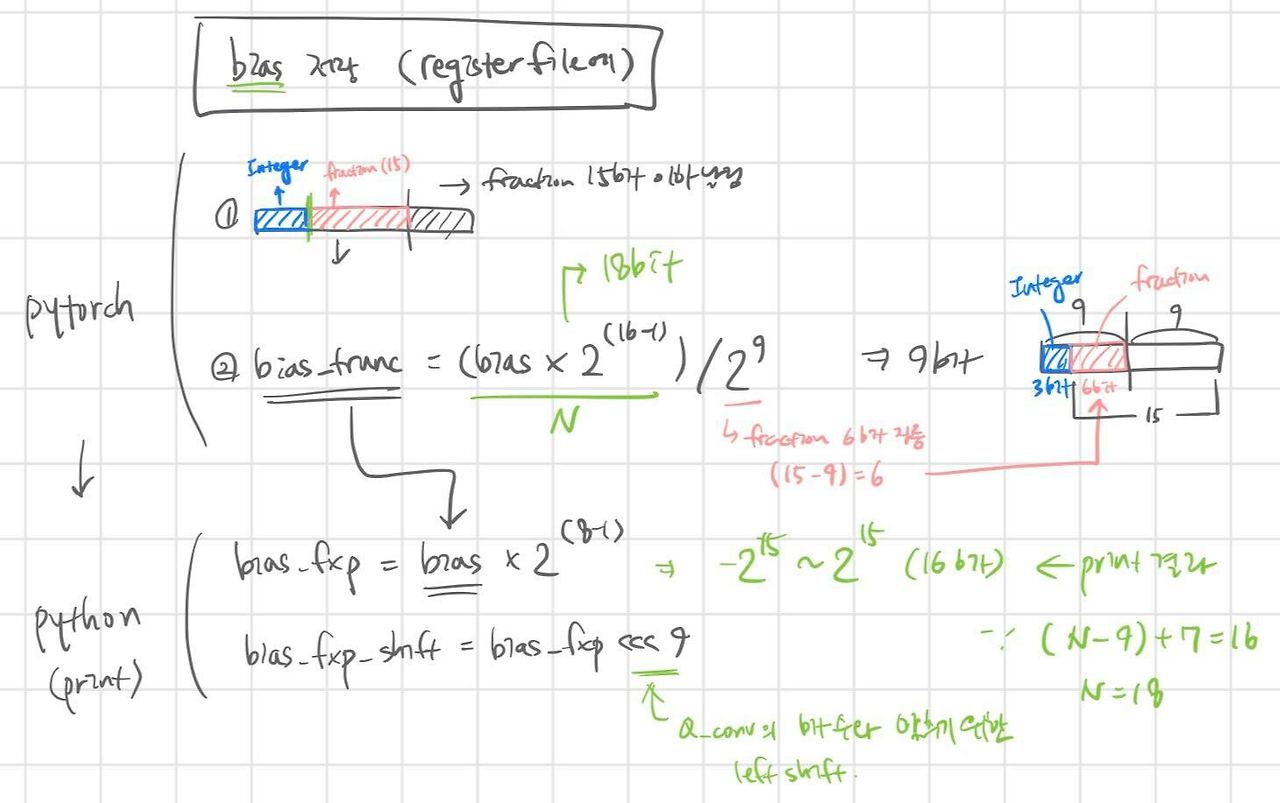 bias 저장 (register file에)
Integer
fraction (15)
→ fraction 15bit 이하 날림
①
→ 18bit
pytorch
② bias_trunc = (bias × 2^(16-1)) / 2^9 ⇒ 9bit
N
↳ fraction 6bit 저장
(15-9) = 6
Integer
fraction
9
9
3bit
6bit
15
python
(print)
bias_fxp = bias × 2^(8-1) ⇒ -2^15 ~ 2^15 (16bit) ← print 결과
bias_fxp_shift = bias_fxp <<< 9
∵ (N-9)+7=16
N=18
Q_conv의 bit수와 맞추기 위한
left shift.